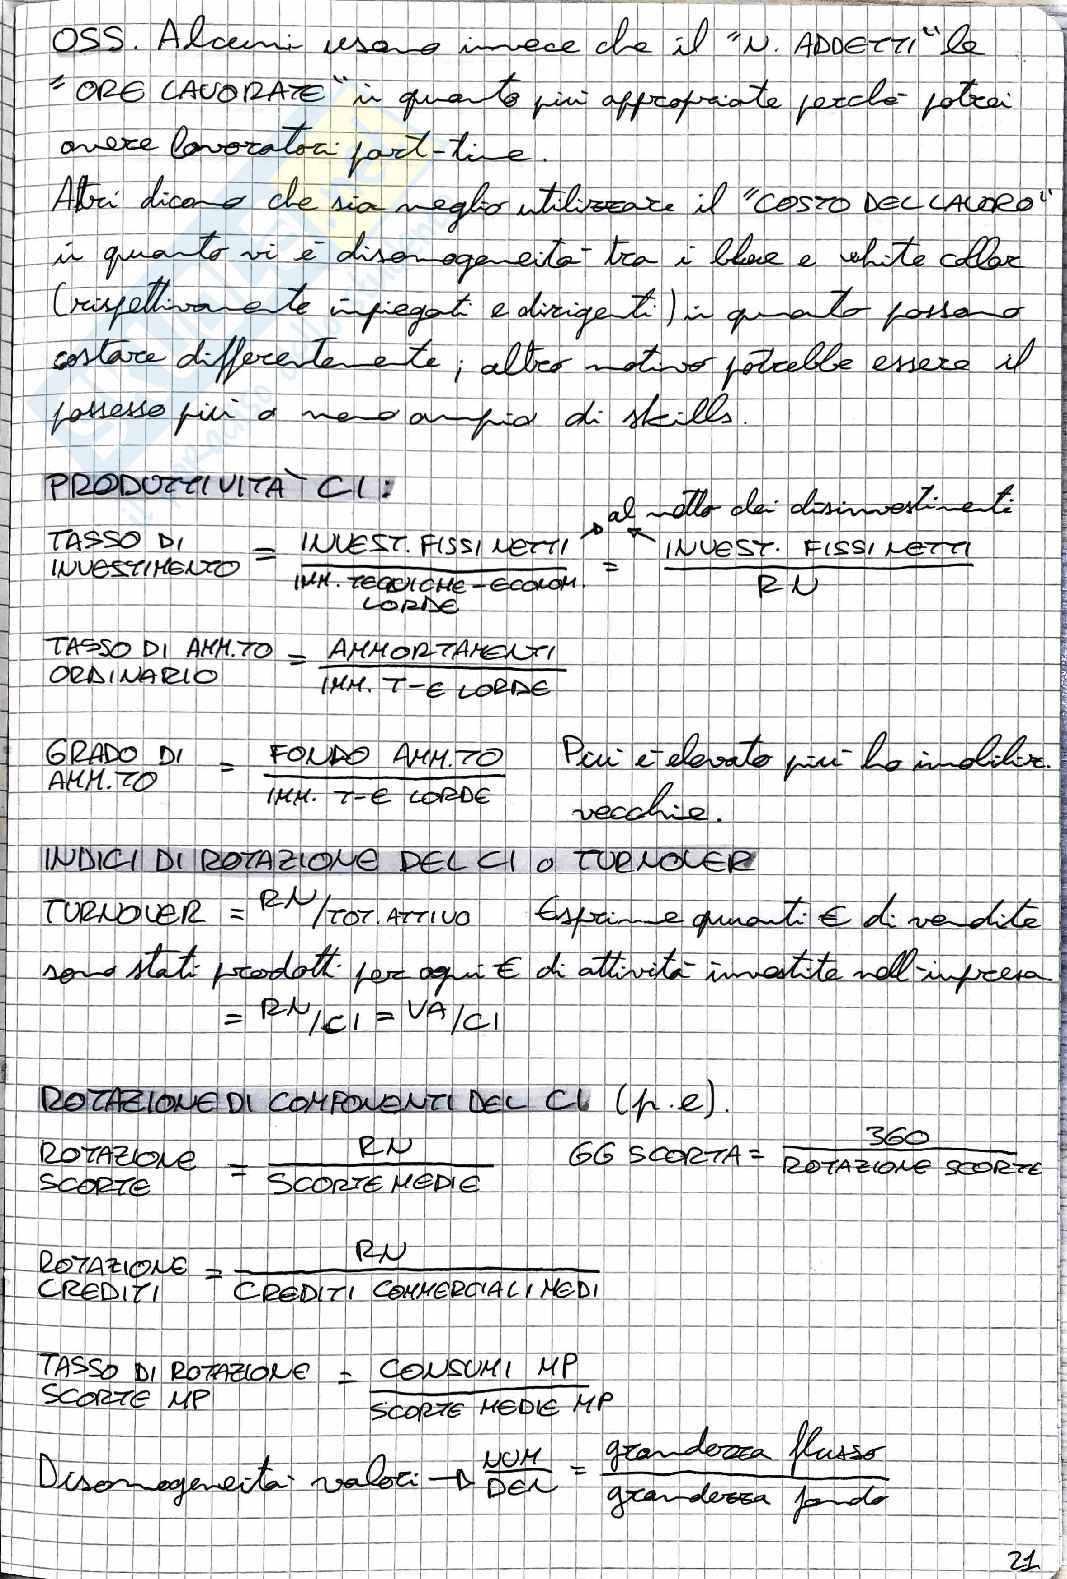 OSS. Alcuni usano invece che il "N. ADDETTI" le
"ORE LAVORATE" in quanto più appropriate perché potrei
avere lavoratori part-time.
Altri dicono che sia meglio utilizzare il "COSTO DEL LAVORO"
in quanto vi è disomogeneità tra i blue e white collar
(rispettivamente impiegati e dirigenti) in quanto possono
costare differentemente; altro motivo potrebbe essere il
possesso più o meno ampio di skills.
PRODUTTIVITÀ CI:
al netto dei disinvestimenti
TASSO DI INVESTIMENTO = INVEST. FISSI NETTI / IMM. TECNICHE-ECONOM. LORDE = INVEST. FISSI NETTI / RN
TASSO DI AMM.TO ORDINARIO = AMMORTAMENTI / IMM. T-E LORDE
GRADO DI AMM.TO = FONDO AMM.TO / IMM. T-E LORDE Più è elevato più ho imobiliz.
vecchie.
INDICI DI ROTAZIONE DEL CI o TURNOVER
TURNOVER = RN/TOT. ATTIVO Esprime quanti € di vendite
sono stati prodotti per ogni € di attività investite nell'impresa
= RN/CI = VA/CI
ROTAZIONE DI COMPONENTI DEL CI (p.e).
ROTAZIONE SCORTE = RN / SCORTE MEDIE GG SCORTA = 360 / ROTAZIONE SCORTE
ROTAZIONE CREDITI = RN / CREDITI COMMERCIALI MEDI
TASSO DI ROTAZIONE SCORTE MP = CONSUMI MP / SCORTE MEDIE MP
Disomogeneità valori → NUM / DEN = grandezza flusso / grandezza fondo
21